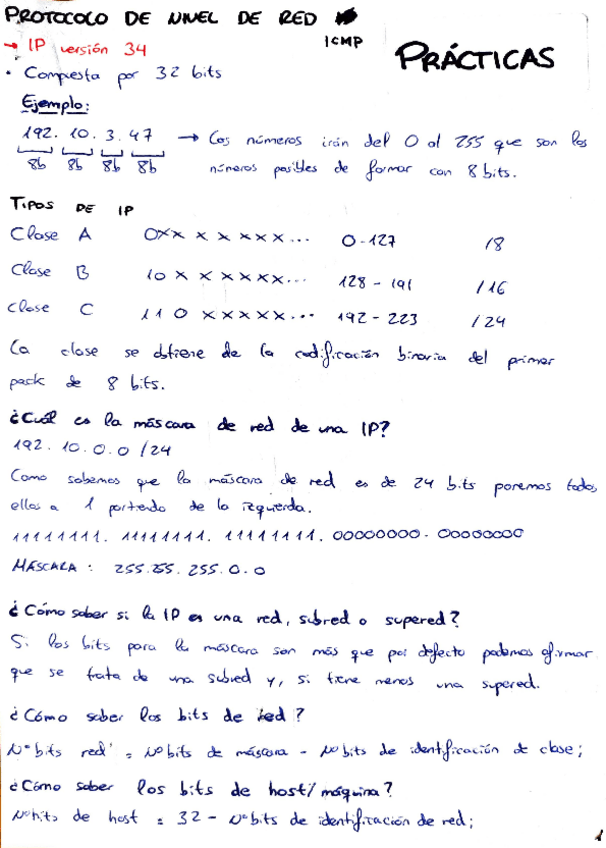 PROTOCOLO DE NIVEL DE RED
ICMP
PRÁCTICAS
→ IP versión 34
• Compuesta por 32 bits
Ejemplo:
192. 10. 3. 47 → Los números irán del 0 al 255 que son los
8b 8b 8b 8b números posibles de formar con 8 bits.
TIPOS DE IP
Clase A 0xx x x x x x... 0-127 /8
Clase B 10 x x x x x x... 128 - 191 /16
Clase C 110 x x x x x... 192 - 223 /24
La clase se obtiene de la codificación binaria del primer
pack de 8 bits.
¿Cuál es la máscara de red de una IP?
192. 10. 0. 0 /24
Como sabemos que la máscara de red es de 24 bits ponemos todos
ellos a 1 partiendo de la izquierda.
11111111. 11111111. 11111111. 00000000. 00000000
MÁSCARA: 255.255.255.0.0
¿Cómo saber si la IP es una red, subred o supered?
Si los bits para la máscara son más que por defecto podemos afirmar
que se trata de una subred y, si tiene menos una supered.
¿Cómo saber los bits de red?
Nº bits red = Nº bits de máscara - Nº bits de identificación de clase;
¿Cómo saber los bits de host/máquina?
Nº bits de host = 32 - Nº bits de identificación de red;
1